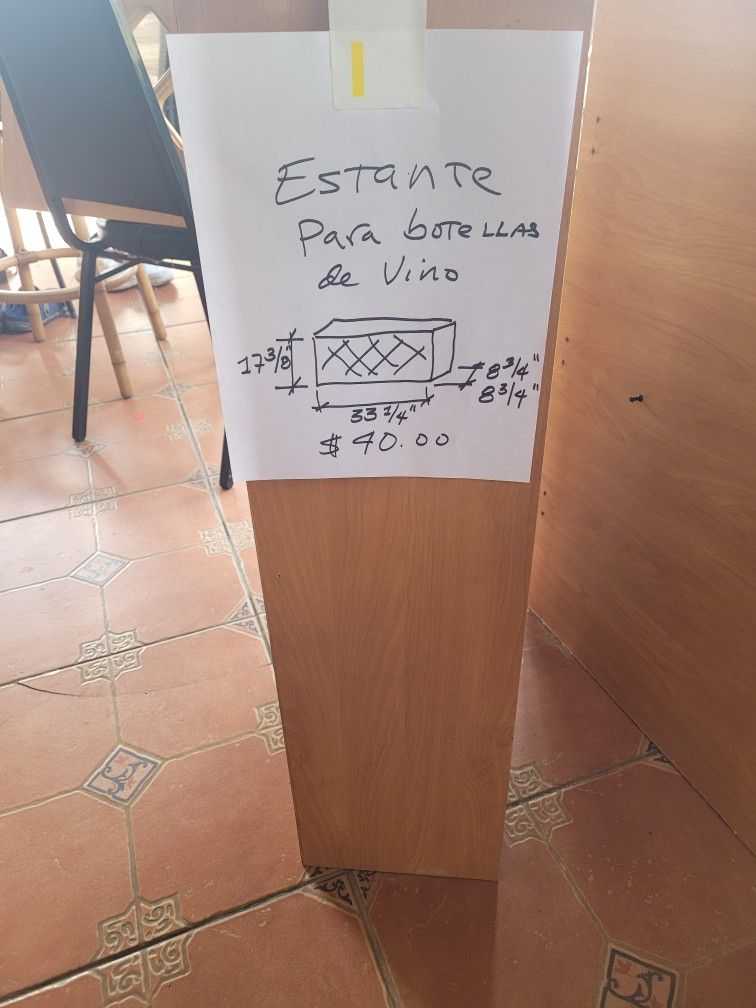 Estante
Para botellas
de Vino
17 3/8"
8 3/4"
8 3/4"
33 1/4"
$ 40.00